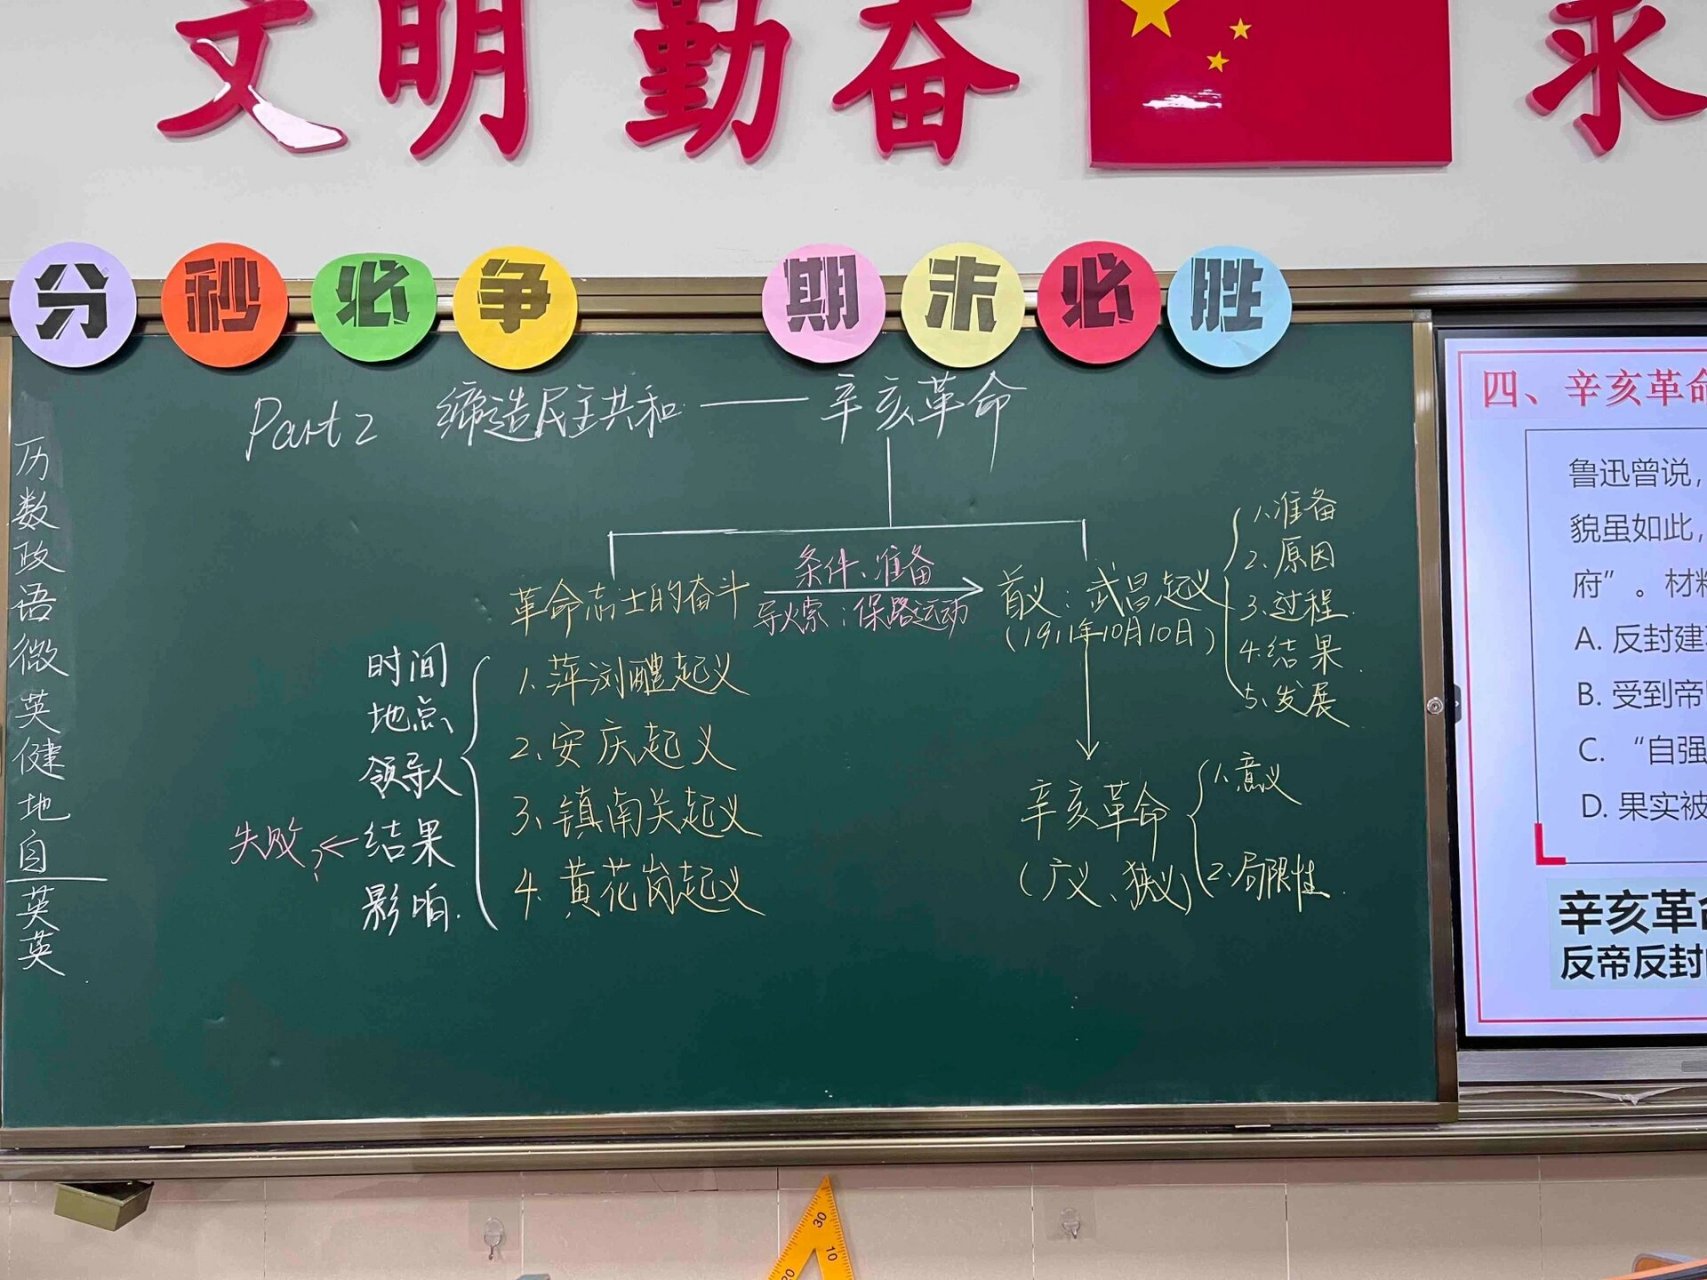 文明勤奋 求
分秒必争 期末必胜
Part 2 缔造民主共和 —— 辛亥革命
历
数
政
语
微
英
健
地
自
英
英
革命志士的奋斗
条件、准备
导火索：保路运动
首义：武昌起义
(1911年10月10日)
1.准备
2.原因
3.过程.
4.结果.
5.发展
时间
地点
领导人
结果
影响.
失败?
1.萍浏醴起义
2.安庆起义
3、镇南关起义
4.黄花岗起义
辛亥革命
(广义、狭义)
1.意义
2.局限性.
四、辛亥革命
鲁迅曾说，
貌虽如此，
府”。材料
A. 反封建
B. 受到帝
C. “自强
D. 果实被
辛亥革命
反帝反封
30
10
20